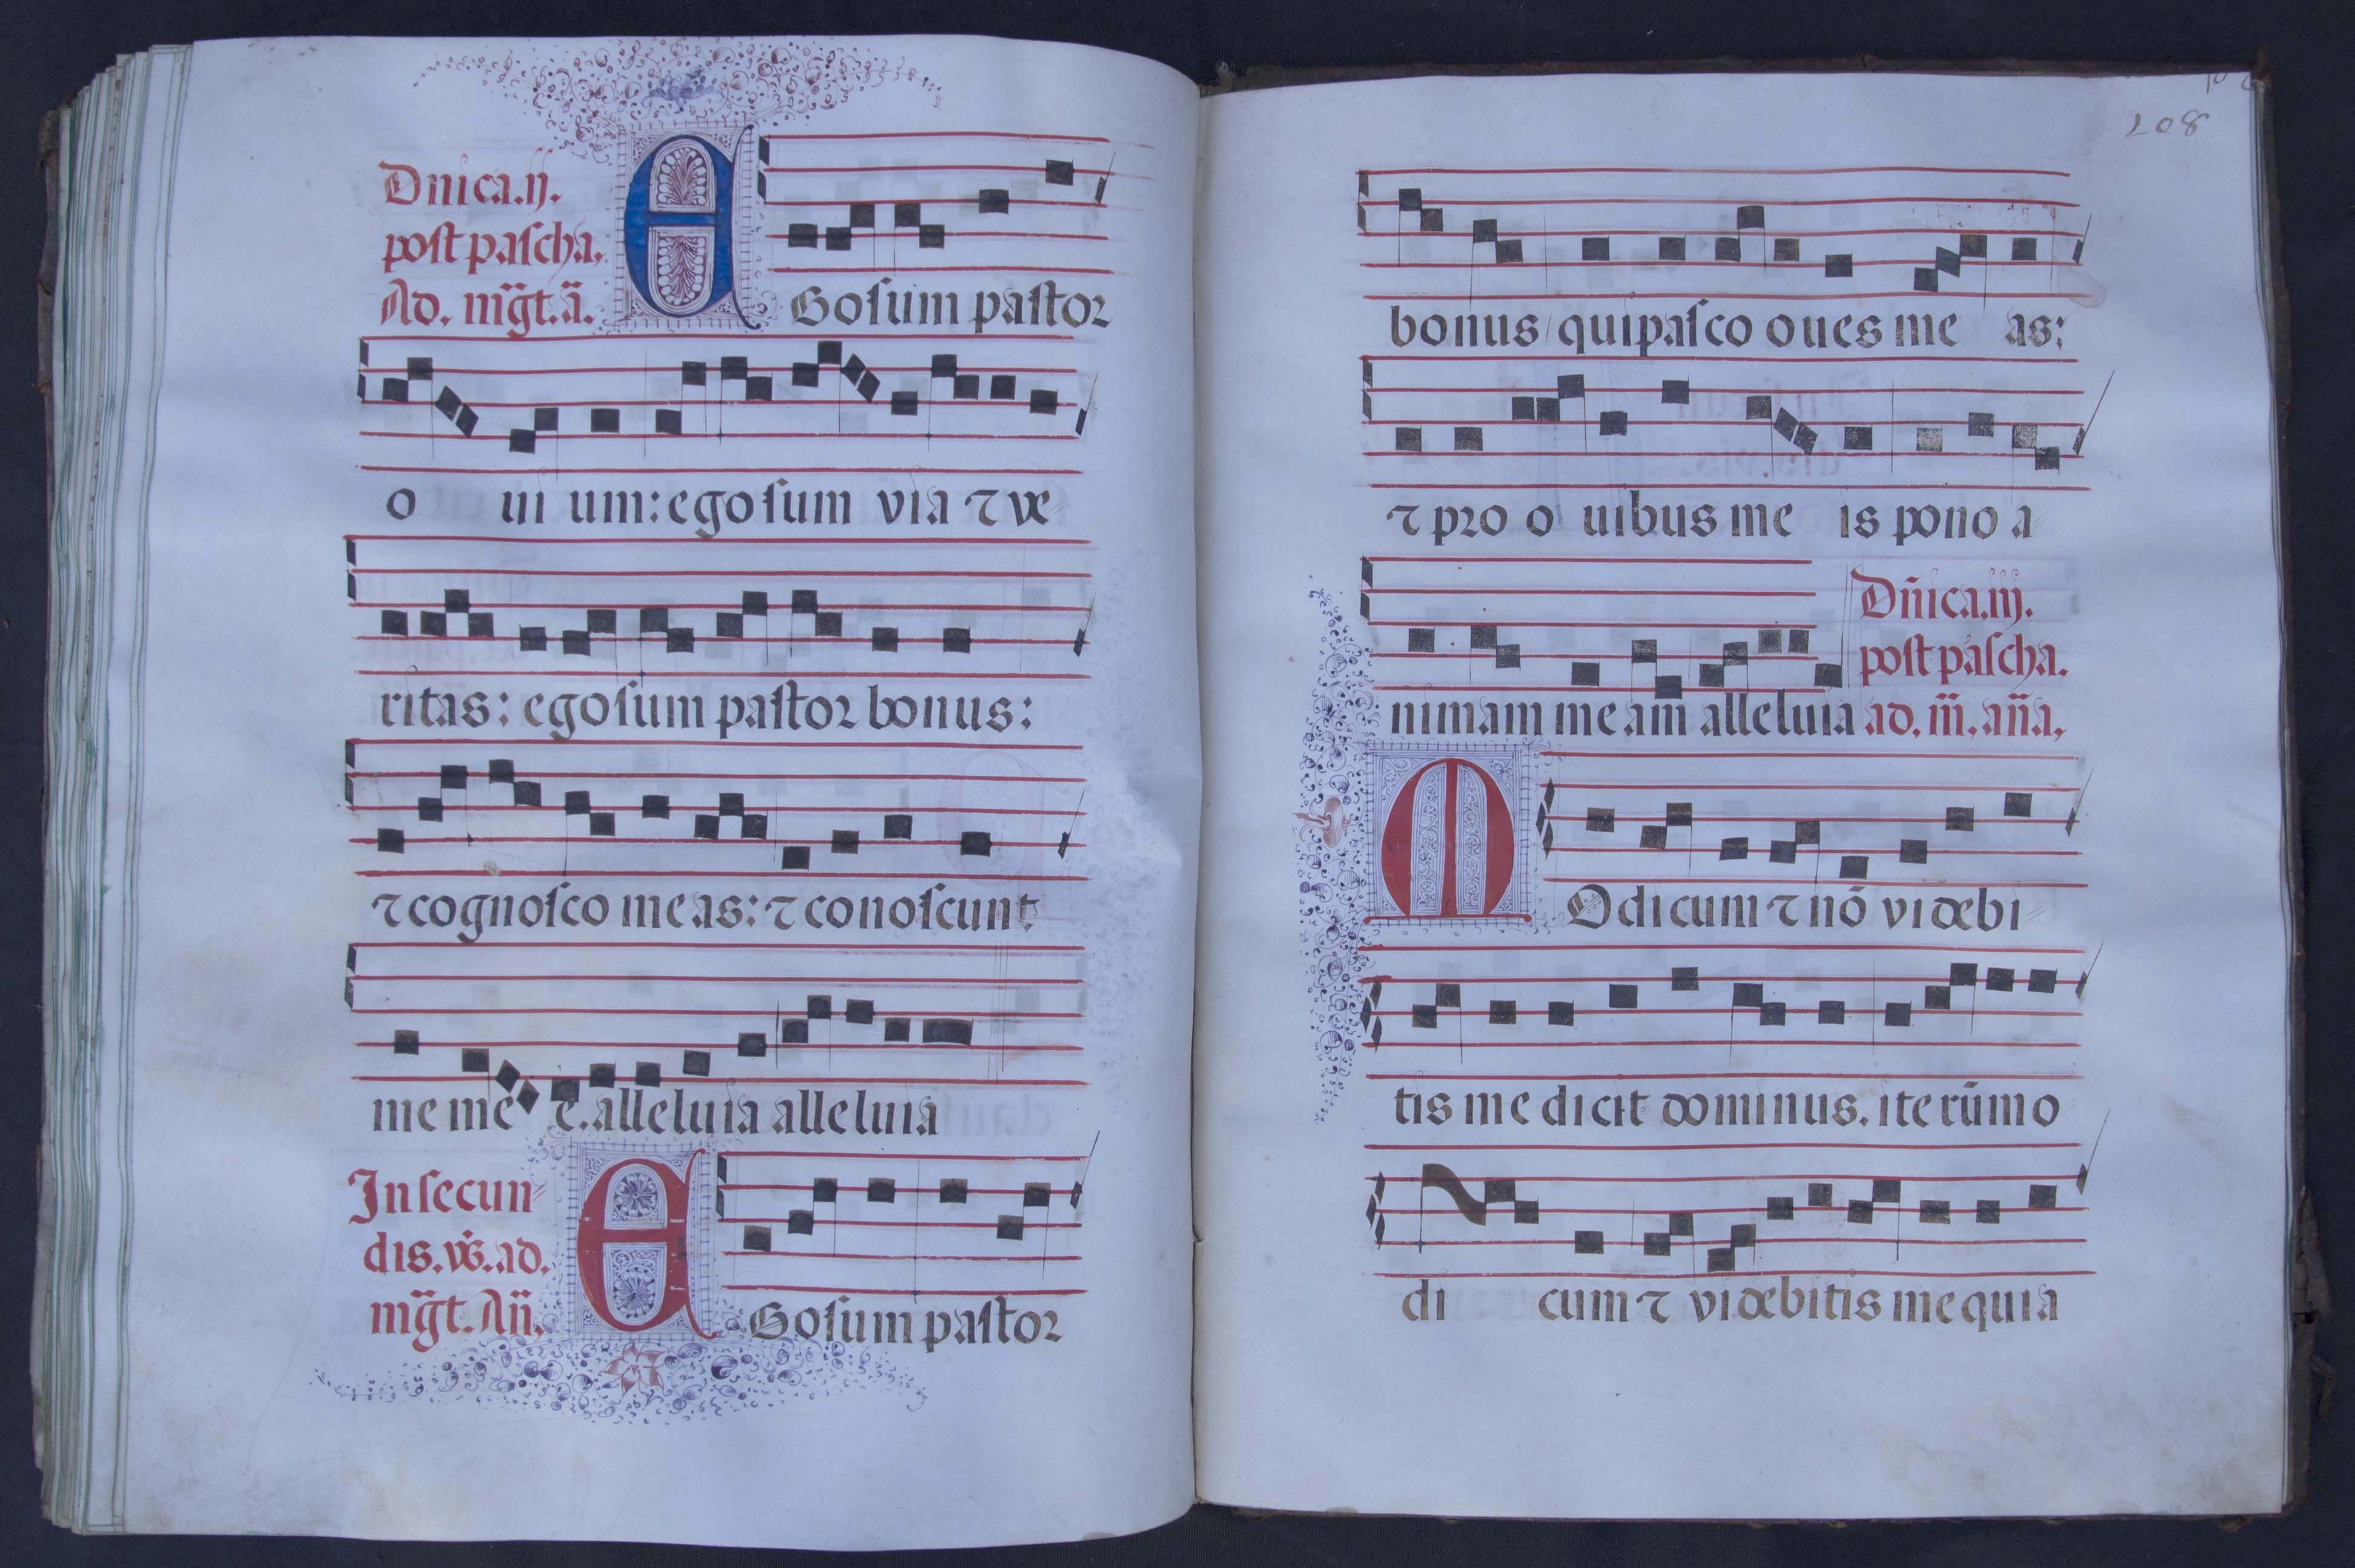 Dnica.ij.
post pascha.
Ad. mg̃t. ã.
EGo sum pastor
o ui um: ego sum via ⁊ ve
ritas: ego sum pastor bonus:
⁊ cognosco meas: ⁊ conoscunt
me me e. alleluia alleluia
In secun
dis. vs̃. ad.
mg̃t. Añ.
EGo sum pastor
208
bonus qui pasco oues me as:
⁊ pro o uibus me is pono a
Dñica.iij.
post pascha.
nimam meam alleluia ad. m̃. aña.
MOdicum ⁊ nõ videbi
tis me dicit dominus. iterũ mo
di cum ⁊ videbitis me quia